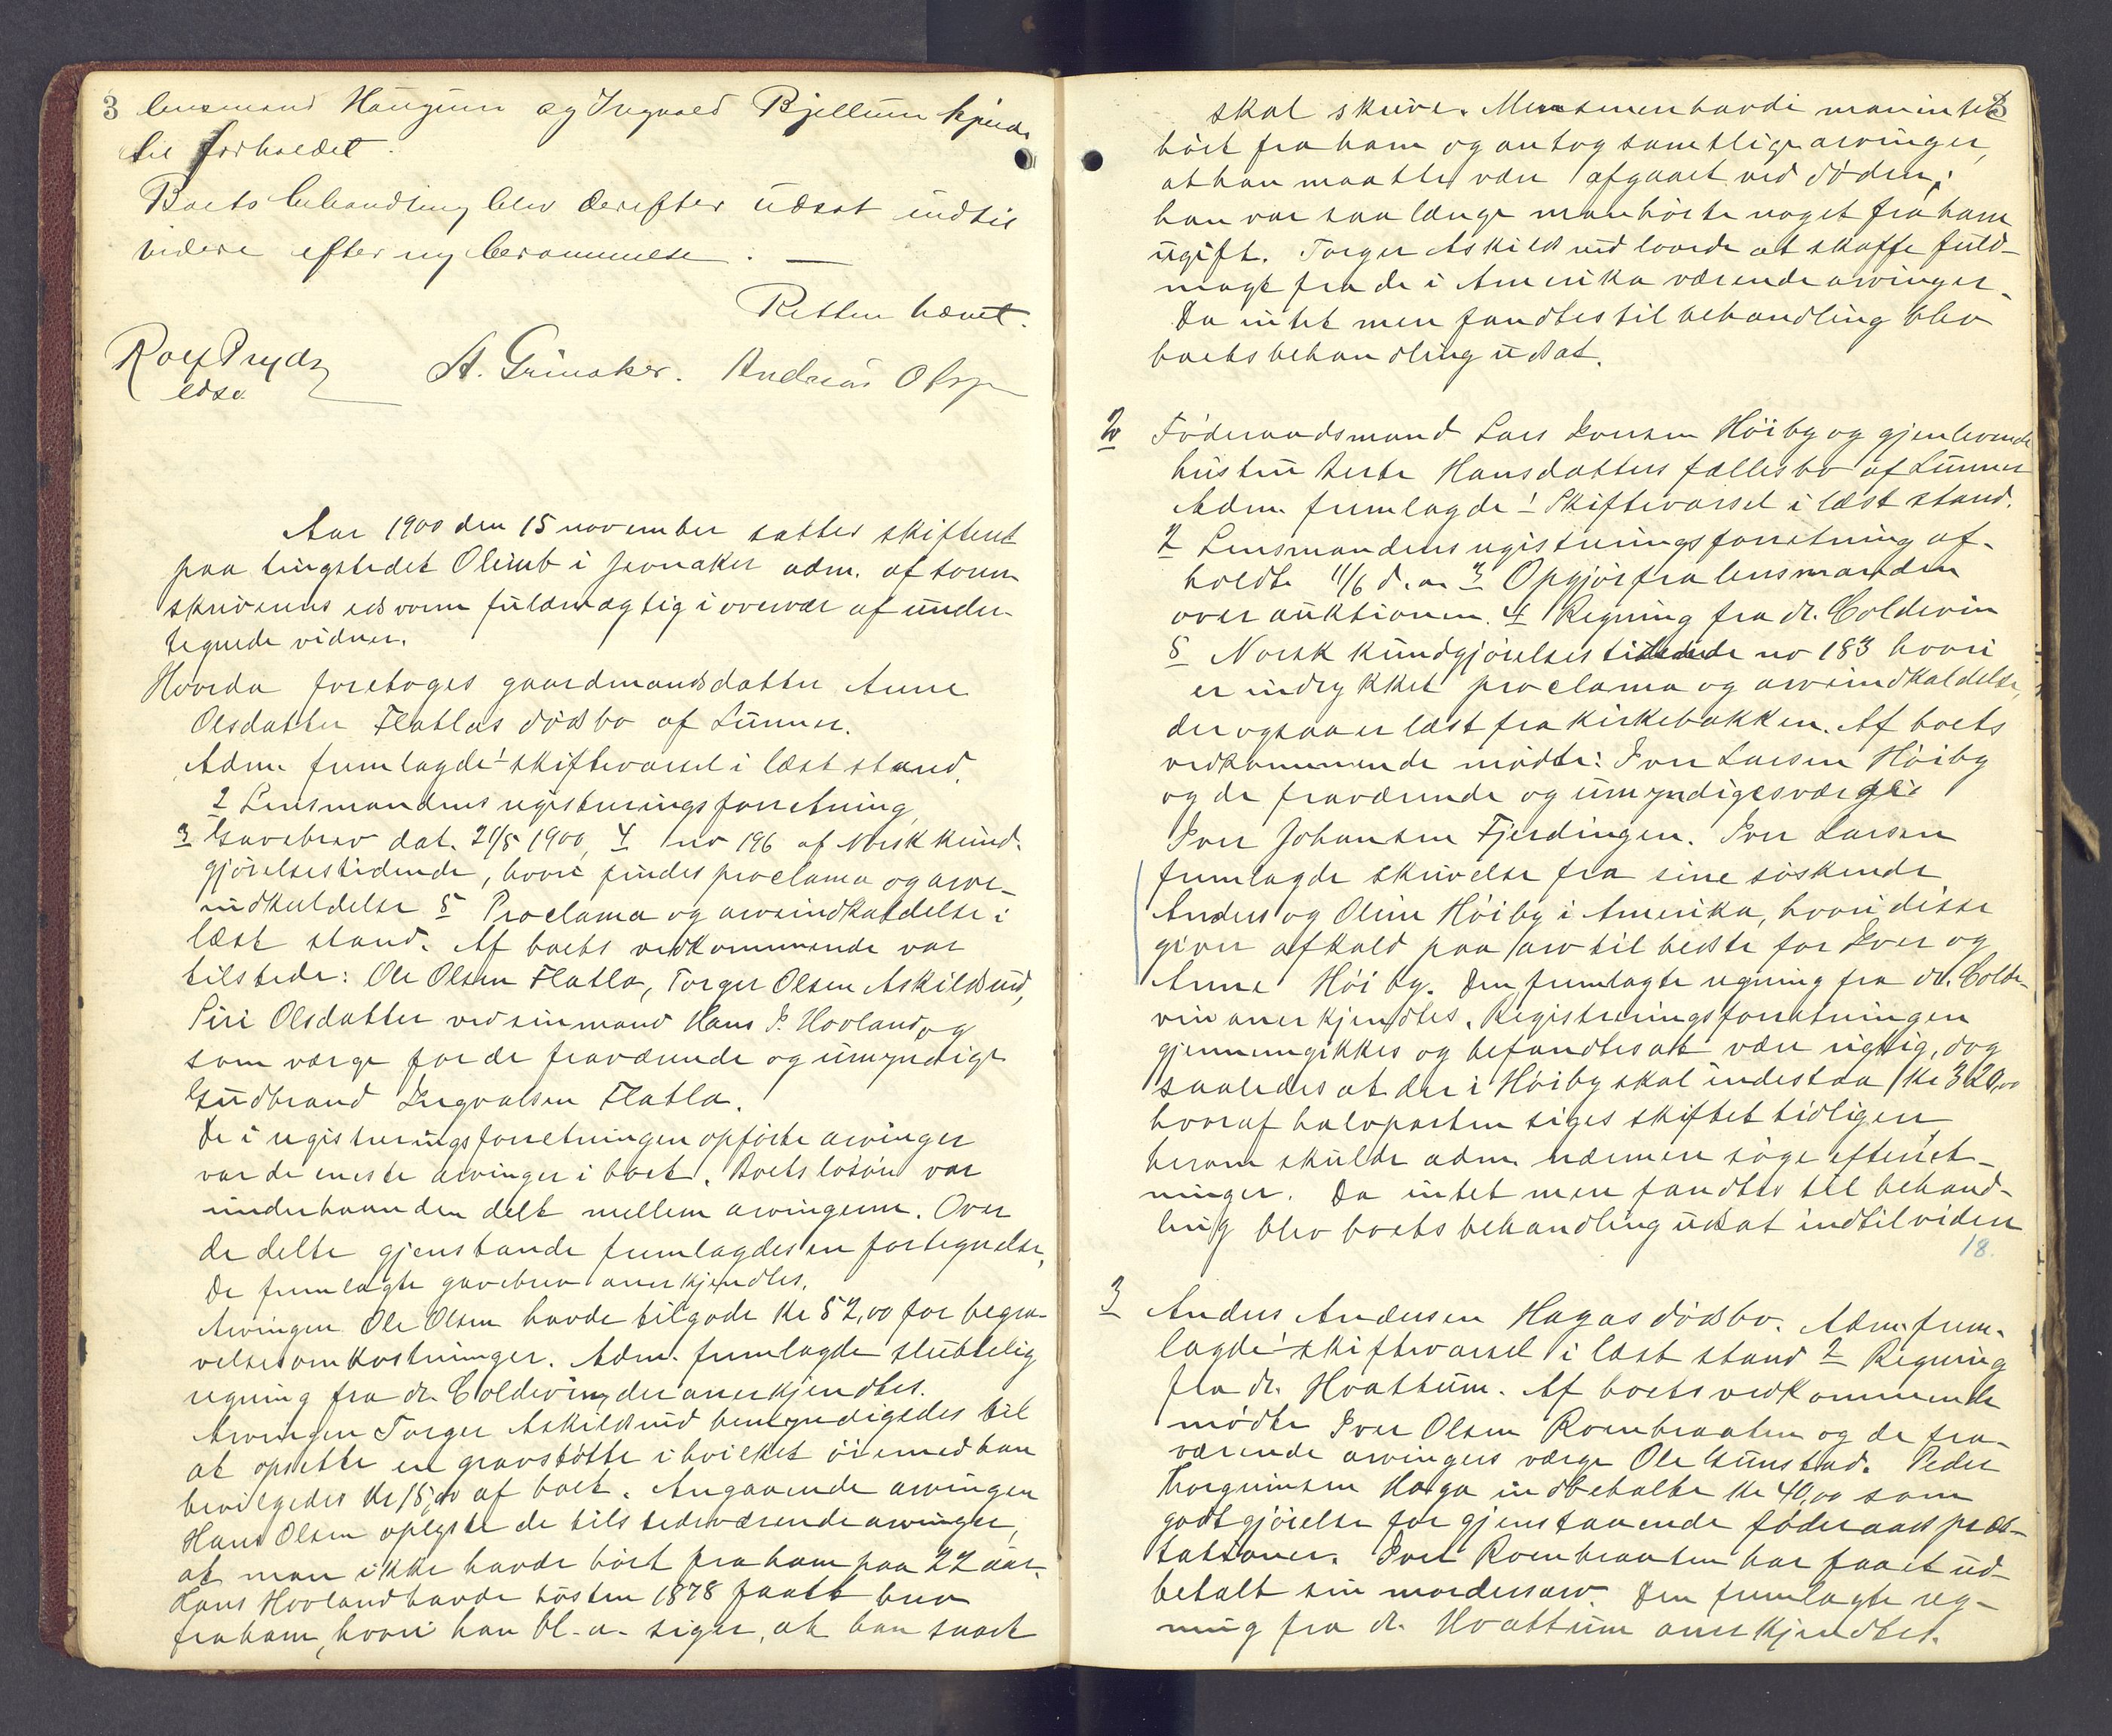 3 lensmand Haugum og Ingvald Bjellum kjendte
til forholdet.
Boets behandling blev derefter udsat indtil
videre efter ny berammelse. —
Retten hævet.
Rolf Prydz A. Grinaker. Andreas Olsen
edsv.
Aar 1900 den 15 november sattes skifteret
paa tingstedet Olimb i Jevnaker adm. af soren-
skriverens edsvorne fuldmægtig i overvær af under-
tegnede vidner.
Hvorda foretoges gaardmandsdatter Anne
Olsdatter Flatlas dødsbo af Lunner.
Adm. fremlagde 1 skiftevarsel i læst stand,
2 Lensmandens registreringsforretning,
3 Gavebrev dat. 21/5 1900, 4 no 196 af Norsk kund-
gjørelsestidende, hvori findes proclama og arve-
indkaldelse 5 Proclama og arveindkaldelse i
læst stand. Af boets vedkommende var
tilstede: Ole Olsen Flatla, Torger Olsen Askildsrud,
Siri Olsdatter ved sin mand Hans P. Hovland, og
som værge for de fraværende og umyndige
Gudbrand Ingvalsen Flatla.
De i registreringsforretningen opførte arvinger
var de eneste arvinger i boet. Boets løsøre var
underhaanden delt mellem arvingerne. Over
de delte gjenstande fremlagdes en fortegnelse,
De fremlagte gavebrev anerkjendtes.
Arvingen Ole Olsen havde tilgode Kr 52,00 for begra-
velsesomkostninger. Adm. fremlagde sluttelig
regning fra dr. Coldevin, der anerkjendtes.
Arvingen Torger Askildsrud bemyndigedes til
at opsette en gravstøtte i hvilket øiemed han
bevilgedes Kr 15,00 af boet. Angaaende arvingen
Hans Olsen oplyste de tilstedeværende arvinger,
at man ikke havde hørt fra ham paa 22 aar.
Hans Hovland havde høsten 1878 faaet brev
fra ham, hvori han bl. a. siger, at han snart
skal skrive. Men senere havde man intet 3
hørt fra ham og antog samtlige arvinger,
at han maatte være afgaaet ved døden;
han var saa længe man hørte noget fra ham
ugift. Torger Askildsrud lovede at skaffe fuld-
magt fra de i Amerika værende arvinger.
Da intet mere fandtes til behandling blev
boets behandling udsat.
2 Føderaadsmand Lars Iversen Høiby og gjenlevende
hustru Berte Hansdatters fællesbo af Lunner
Adm. fremlagde 1 Skiftevarsel i læst stand.
2 Lensmandens registreringsforretning af-
holdt 11/6 d. a. 3 Opgjør fra lensmanden
over auktionen. 4 Regning fra dr. Coldevin
5 Norsk kundgjørelsestidende no 183 hvori
er indrykket proclama og arveindkaldelse,
der ogsaa er læst fra kirkebakken. Af boets
vedkommende mødte: Iver Larsen Høiby
og de fraværende og umyndiges værge
Iver Johansen Fjerdingen. Iver Larsen
fremlagde skrivelse fra sine søskende
Anders og Oline Høiby i Amerika, hvori disse
giver afkald paa arv til bedste for Iver og
Anne Høiby. Den fremlagte regning fra dr. Colde-
vin anerkjendtes. Registreringsforretningen
gjennemgikkes og befandtes at være rigtig, dog
saaledes at der i Høiby skal indestaa Kr 320,00
hvoraf halvparten siges skiftet tidligere,
herom skulde adm. nærmere søge efterret-
ninger. Da intet mere fandtes til behand-
ling blev boets behandling udsat indtil videre
18.
3 Anders Andersen Hagas dødsbo. Adm. frem-
lagde 1 skiftevarsel i læst stand 2 Regning
fra dr. Hvattum. Af boets vedkommende
mødte Iver Olsen Roenbraaten og de fra-
værende arvingers værge Ole Gunstad. Peder
Thorgrimsen Haga indbetalte Kr 40,00 som
godtgjørelse for gjenstaaende føderaadspræs-
tationer. Iver Roenbraaten har faaet ud-
betalt sin mødrenearv. Den fremlagte reg-
ning fra dr. Hvattum anerkjendtes.